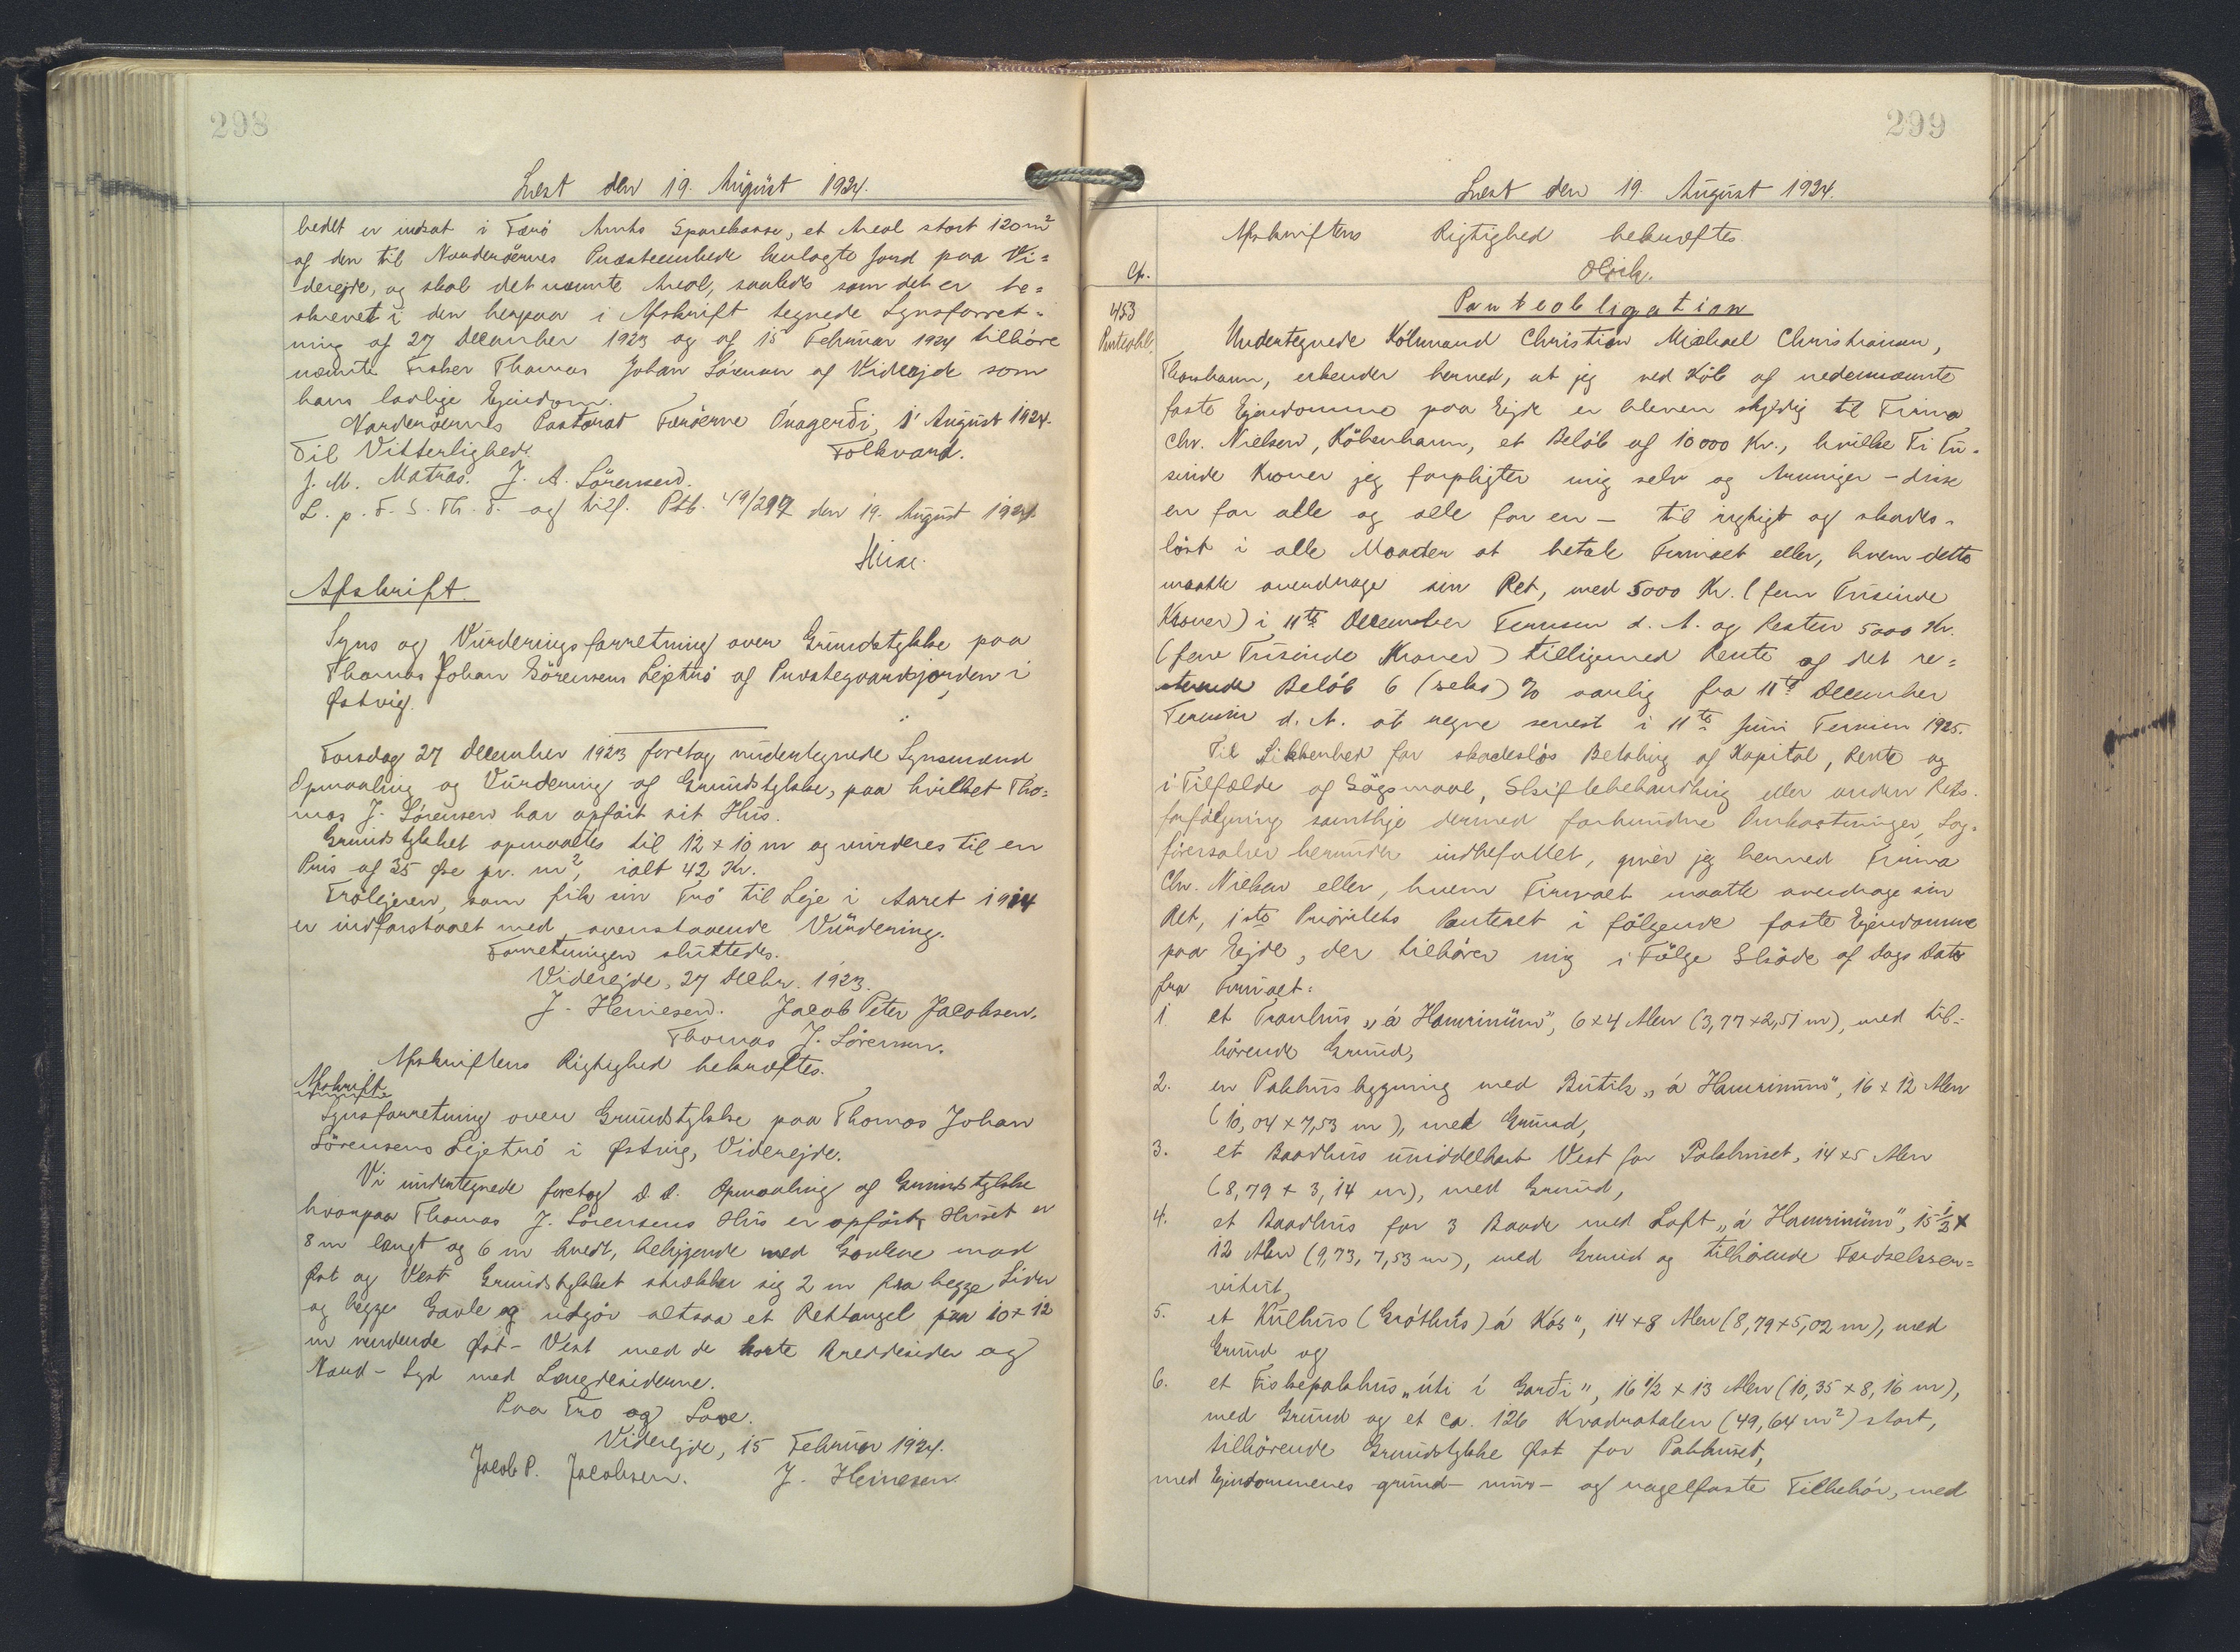 298
Læst den 19. August 1924.
hedet er indsat i Færø Amts Sparekasse, et Areal stort 120 m²
af den til Norderøernes Præsteembede henlagte Jord paa Vi=
derejde, og skal det nævnte Areal, saaledes som det er be=
skrevet i den herpaa i Afskrift tegnede Synsforret-
ning af 27 December 1923 og af 15 Februar 1924 tilhøre
nævnte Fisker Thomas Johan Sörensen af Viderejde som
hans lovlige Ejendom.
Norderøernes Pastorat Færöerne Ónagerði, 1' August 1924.
Til Vitterlighed. Folkvard.
J. M. Matras. J. A. Sörensen.
L. p. F. S. Th. T. og tilf. Ptb. 49/297 den 19. August 1924.
Heise.
Afskrift.
Syns og Vurderingsforretning over Grundstykke paa
Thomas Johan Sörensens Lejetrö af Præstegaardsjorden i
Østvig.
Torsdag 27 December 1923 foretog undertegnede Synsmænd
Opmaaling og Vurdering af Grundstykke, paa hvilket Tho=
mas J. Sörensen har opført sit Hus.
Grundstykket opmaaltes til 12 x 10 m og vurderes til en
Pris af 35 Øre pr. m², ialt 42 Kr.
Trölejeren, som fik sin Trö til Leje i Aaret 1914
er indforstaaet med ovenstaaende Vurdering.
Forretningen sluttedes.
Viderejde, 27 Decbr. 1923.
J. Heinesen. Jacob Peter Jacobsen.
Thomas J. Sörensen.
Afskriftens Rigtighed bekræftes.
Afskrift
Synsforretning over Grundstykke paa Thomas Johan
Sörensens Lejetrö i Østvig, Viderejde.
Vi undertegnede foretog D. D. Opmaaling af Grundstykke
hvorpaa Thomas J. Sörensens Hus er opført. Huset er
8 m langt og 6 m bredt, beliggende med Gavlene mod
Øst og Vest. Grundstykket strækker sig 2 m fra begge Sider
og begge Gavle og udgör altsaa et Rektangel paa 10 x 12
m vendende Øst - Vest med de korte Breddesider og
Nord - Syd med Længdesiderne.
Paa Tro og Love.
Viderejde, 15 Februar 1924.
Jacob P. Jacobsen. J. Heinesen
299
Læst den 19. August 1924.
Afskriftens Rigtighed bekræftes.
Cfr.
453
Panteobl.
Panteobligation
Undertegnede Kölmand Christian Michael Christiansen,
Thorshavn, erkender herved, at jeg ved Køb af nedennævnte
faste Ejendomme paa Ejde er bleven skyldig til Firma
Chr. Nielsen, København, et Beløb af 10000 Kr., hvilke Ti Tu=
sinde Kroner jeg forpligter mig selv og Arvinger - disse
en for alle og alle for en - til rigtigt og skades=
löst i alle Maader at betale Firmaet eller, hvem dette
maatte overdrage sin Ret, med 5000 Kr. (fem Tusinde
Kroner) i 11te December Termin d. A. og Resten 5000 Kr.
(fem Tusinde Kroner) tilligemed Rente af det re=
sterende Beløb 6 (seks) % aarlig fra 11te December
Termin d. A. at regne senest i 11te Juni Termin 1925.
Til Sikkerhed for skadesløs Betaling af Kapital, Rente og
i Tilfælde af Søgsmaal, Skiftebehandling eller anden Rets=
forfølgning samtlige dermed forbundne Omkostninger, Sag=
førersalær herunder indbefattet, giver jeg herved Firma
Chr. Nielsen eller, hvem Firmaet maatte overdrage sin
Ret, 1ste Prioritets Panteret i følgende faste Ejendomme
paa Ejde, der tilhører mig i Følge Skøde af Dags Dato
fra Firmaet:
1 et Tranhus „á Hamrinum", 6x4 Alen (3,77x2,51 m), med til-
hörende Grund,
2. en Pakhusbygning med Butik „á Hamrinum", 16 x 12 Alen
(10,04 x 7,53 m), med Grund,
3. et Baadhus umiddelbart Vest for Pakhuset, 14x5 Alen
(8,79 x 3,14 m), med Grund,
4. et Baadhus for 3 Baade med Loft „á Hamrinum", 15½ x
12 Alen (9,73, 7,53 m), med Grund og tilhørende Færdselsser=
vitut,
5. et Kulhus (Gróthús) á Kós", 14x8 Alen (8,79x5,02 m), med
Grund og
6. et Fiskepakhus „úti í Garði", 16 1/2 x 13 Alen (10,35 x 8,16 m),
med Grund og et ca. 126 Kvadratalen (49,64 m²) stort,
tilhörende Grundstykke Øst for Pakhuset,
med Ejendommenes grund- mur- og nagelfaste Tilbehör, med